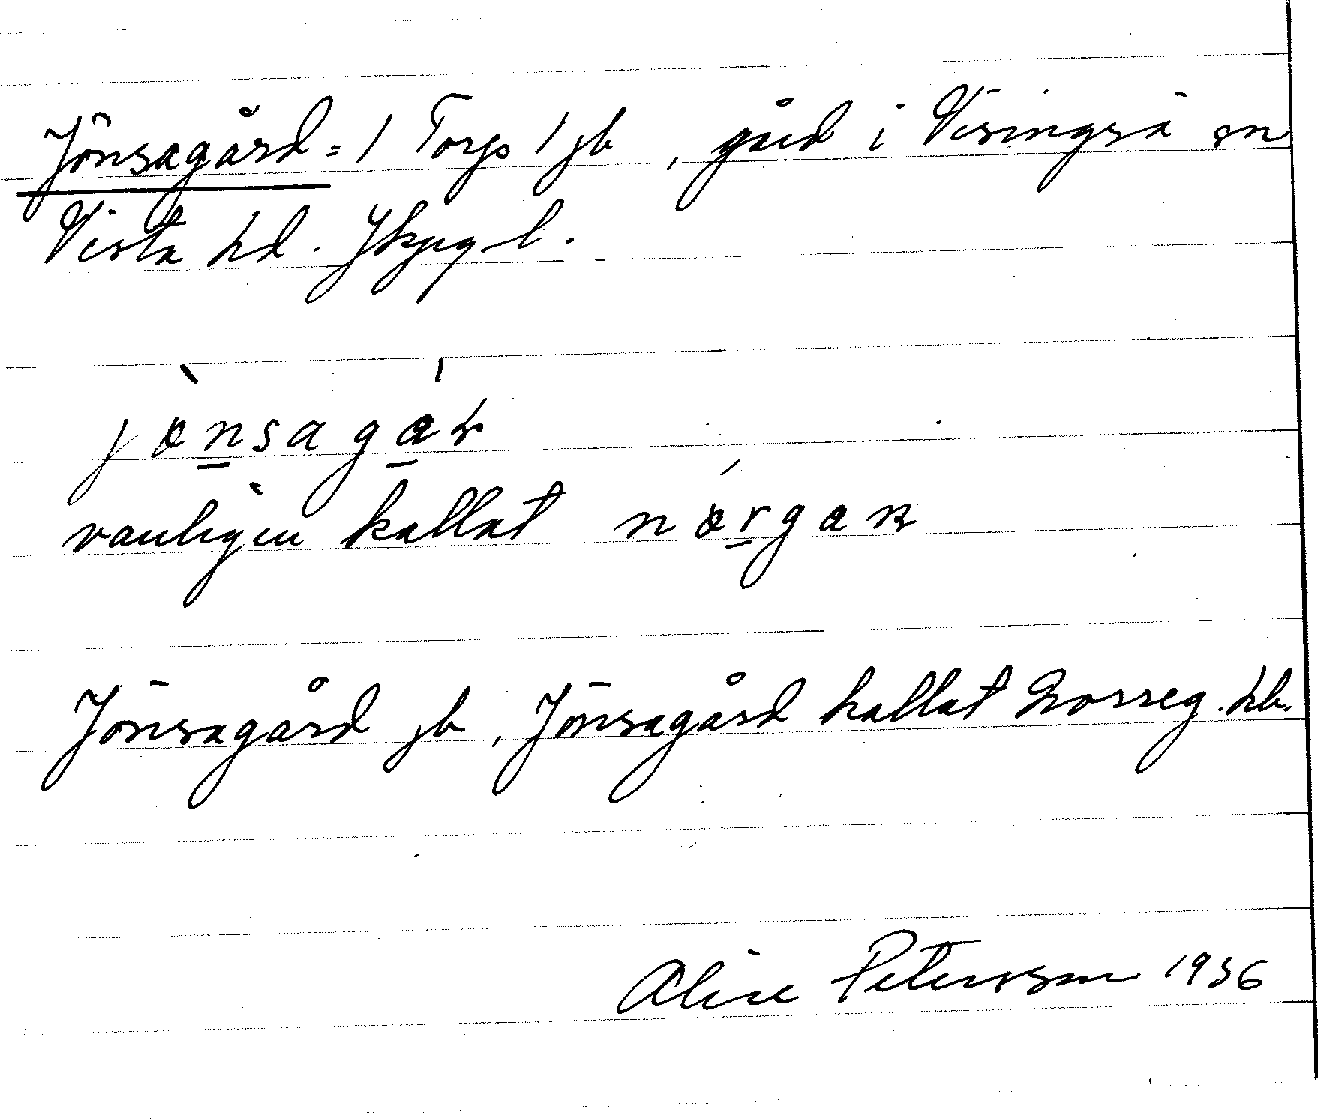 Jönsagård = 1 Torp 1 jb, gård i Visingsö sn
Vista hd. Jkpg l.
jònsagár
vanligen kallat nórgan
Jönsagård jb, Jönsagård kallat Norreg. kb.
Alice Petersson 1936